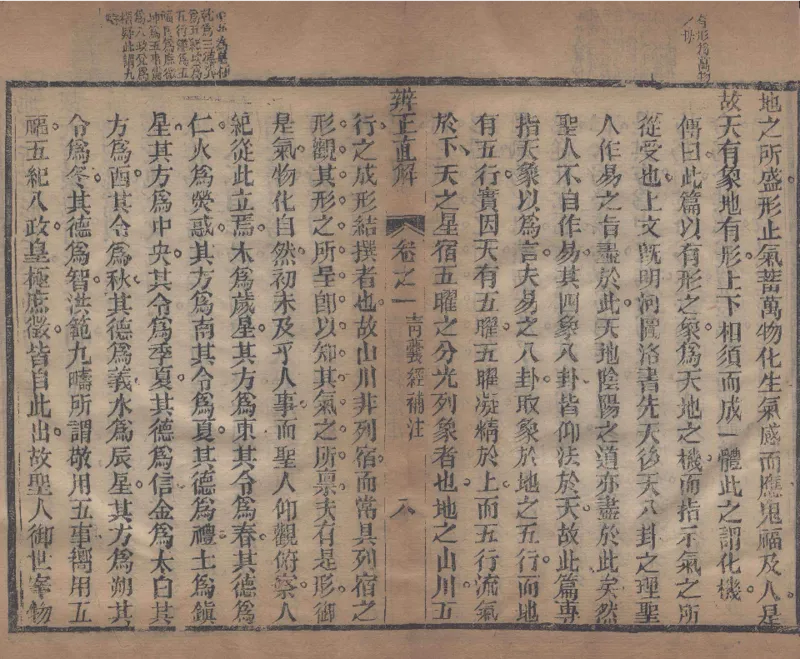 地之所盛形止氣蓄萬物化生氣感而應鬼福及人是
故天有象地有形上下相須而成一體此之謂化機
傳曰此篇以有形之象爲天地之機而指示氣之所
從受也上文旣明河圖洛書先天後天八卦之理聖
人作易之旨盡於此天地陰陽之道亦盡於此矣然
聖人不自作易其四象八卦皆仰法於天故此篇專
指天象以爲言夫易之八卦取象於地之五行而地
有五行實因天有五曜五曜凝精於上而五行流氣
於下天之星宿五曜之分光列象者也地之山川五
辨正直解
卷之一
青囊經補注
八
行之成形結撰者也故山川非列宿而常具列宿之
形觀其形之所呈卽以知其氣之所禀夫有是形御
是氣物化自然初未及乎人事而聖人仰觀俯察人
紀從此立焉木爲歲星其方爲東其令爲春其德爲
仁火爲熒惑其方爲南其令爲夏其德爲禮土爲鎭
星其方爲中央其令爲季夏其德爲信金爲太白其
方爲酉其令爲秋其德爲義水爲辰星其方爲朔其
令爲冬其德爲智洪範九疇所謂敬用五事嚮用五
福五紀八政皇極庶徵皆自此出故聖人御世宰物